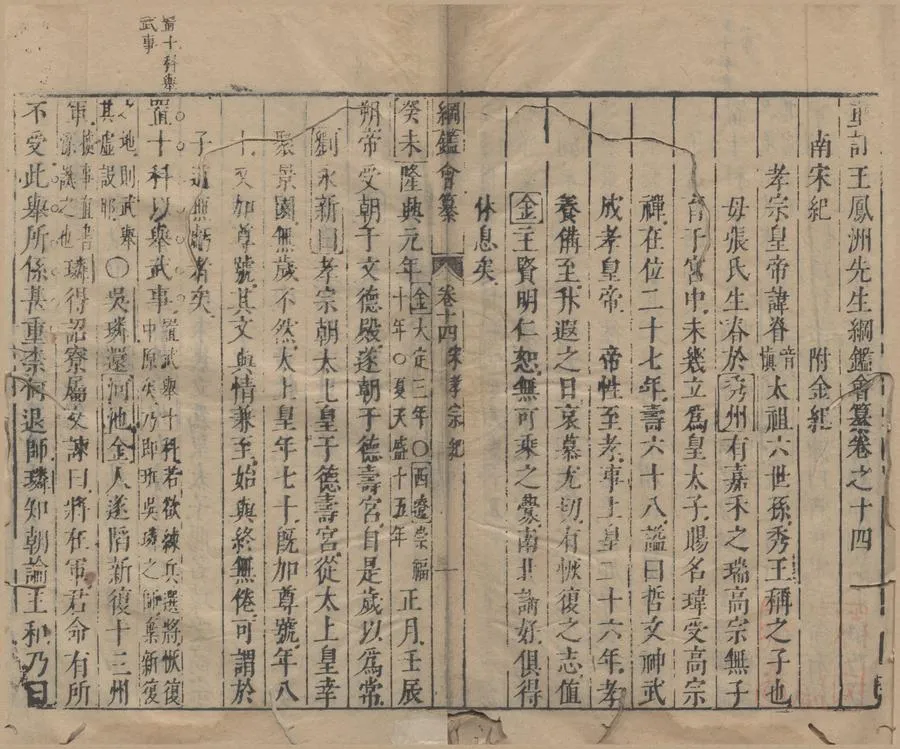 重訂王鳳洲先生綱鑑會纂卷之十四
南宋紀 附金紀
孝宗皇帝諱眘音愼太祖六世孫秀王稱之子也
母張氏生春於秀州有嘉禾之瑞高宗無子
育于宮中未幾立爲皇太子賜名瑋受高宗
禪在位二十七年壽六十八謚曰哲文神武
成孝皇帝 帝性至孝事上皇二十六年孝
養備至升遐之日哀慕尤切有恢復之志值
金主賢明仁恕無可乘之釁南北講好俱得
休息矣
綱鑑會纂 卷十四 宋孝宗紀 一
癸未隆興元年金大定三年○西遼崇福十年○夏天盛十五年正月壬辰
朔帝受朝于文德殿遂朝于德壽宮自是歲以爲常
劉永新曰孝宗朝太上皇于德壽宮從太上皇幸
聚景園無歲不然太上皇年七十旣加尊號年八
十又加尊號其文與情兼至始與終無倦可謂於
子道無虧者矣
置十科舉武事
置十科以舉武事置武舉十科若欲練兵選將恢復中原矣乃卽班吳璘之師棄新復
之地則武舉其虛設耶○吳璘還河池金人遂陷新復十三州
軍據事直書深譏之也璘得詔寮屬交諫曰將在軍君命有所
不受此舉所係甚重柰何退師璘知朝論主和乃曰